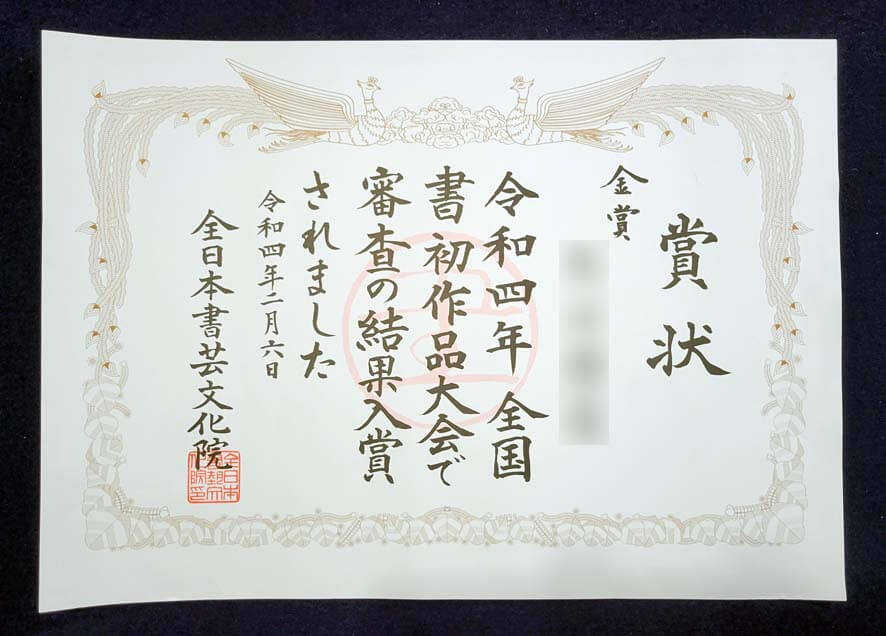 賞状
金賞
令和四年 全国
書初作品大会で
審査の結果入賞
されました
令和四年二月六日
全日本書芸文化院